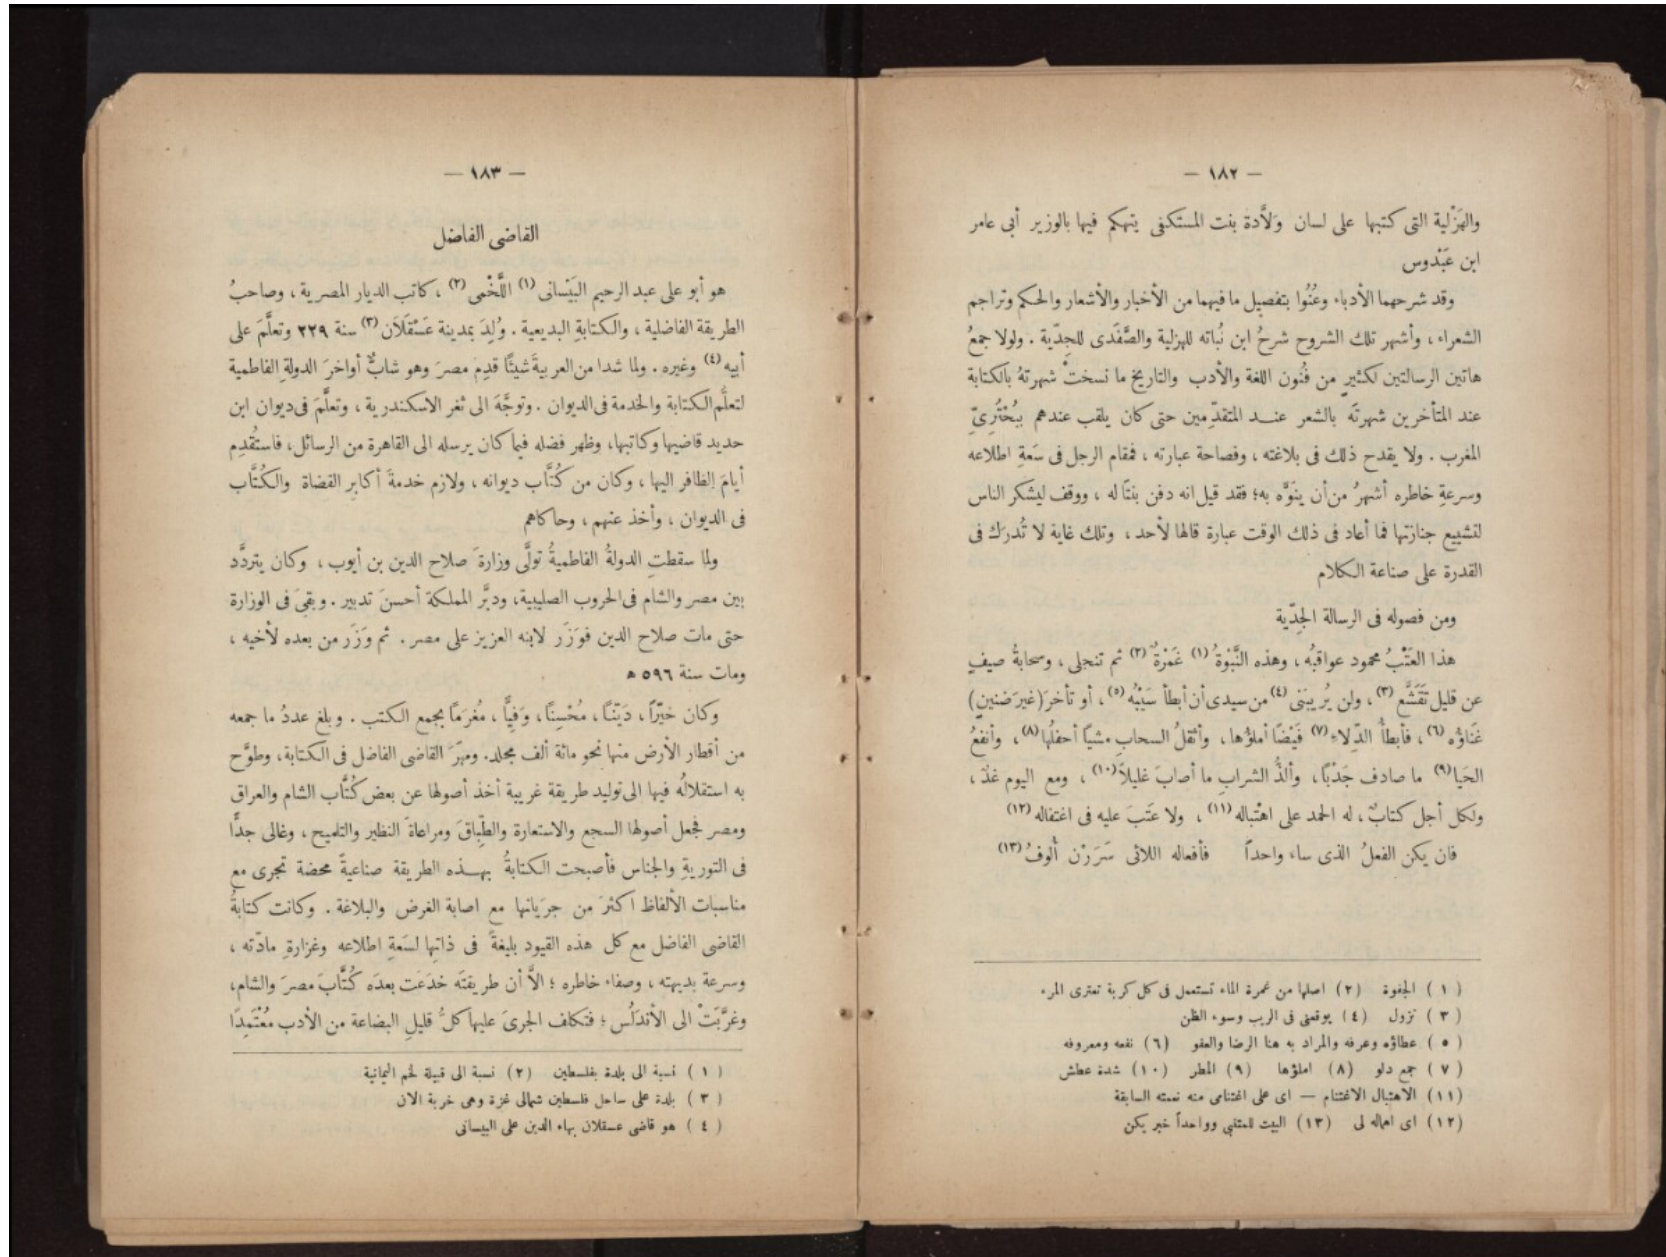 — ١٨٢ —
والهَزْلية التى كتبها على لسان وَلاَّدة بنت المستكفى يتهكم فيها بالوزير أبى عامر
ابن عَبْدوس
وقد شرحهما الأدباء وعُنُوا بتفصيل ما فيهما من الأخبار والأشعار والحكم وتراجم
الشعراء ، وأشهر تلك الشروح شرحُ ابن نُباته للهزلية والصَّفَدى للجِدّية . ولولا جمعُ
هاتين الرسالتين لكثيرٍ من فُنُون اللغة والأدب والتاريخ ما نسختْ شهرتهُ بالكتابة
عند المتأخرين شهرتَه بالشعر عنـد المتقدّمين حتى كان يلقب عندهم ببُحْتُرِىّ
المغرب . ولا يقدح ذلك فى بلاغته ، وفصاحة عبارته ، فمقام الرجل فى سَعَةِ اطلاعه
وسرعةِ خاطره أشهرُ من أن ينَوَّه به؛ فقد قيل انه دفن بنتًا له ، ووقف ليشكر الناس
لتشييع جنازتها فما أعاد فى ذلك الوقت عبارة قالها لأحد ، وتلك غاية لا تُدرَك فى
القدرة على صناعة الكلام
ومن فصوله فى الرسالة الجِدّية
هذا العَتْبُ محمود عواقبُه ، وهذه النَّبْوَةُ (١) غَمْرْةٌ (٢) ثم تنجلى ، وسحابةُ صيفٍ
عن قليل تَقَشَّع (٣) ، ولن يُريبَنى (٤) من سيدى أن أبطأ سَيْبُه (٥) ، أو تأخرَ (غيرَ ضنينٍ)
غَنَاؤُه (٦) ، فأبطأُ الدِّلاءِ (٧) فَيْضًا أملؤها ، وأثقلُ السحابِ مشيًا أحفلُها (٨) ، وأنفعُ
الحَيا (٩) ما صادف جَدْبًا ، وألذُّ الشرابِ ما أصابَ غليلاً (١٠) ، ومع اليوم غدٌ ،
ولكل أجل كتابٌ ، له الحمد على اهتْباله (١١) ، ولا عَتبَ عليه فى اغتفاله (١٢)
فان يكن الفعلُ الذى ساء واحداً فأفعاله اللائى سَرَرْن أُلوفُ (١٣)
( ١ ) الجفوة ( ٢ ) اصلها من غمرة الماء تستعمل فى كل كربة تعترى المرء
( ٣ ) تزول ( ٤ ) يوقعنى فى الريب وسوء الظن
( ٥ ) عطاؤه وعرفه والمراد به هنا الرضا والعفو ( ٦ ) نفعه ومعروفه
( ٧ ) جمع دلو ( ٨ ) املؤها ( ٩ ) المطر (١٠) شدة عطش
(١١) الاهتبال الاغتنام — اى على اغتنامى منه نعمته السابقة
(١٢) اى اهماله لى (١٣) البيت للمتنبي وواحداً خبر يكن
— ١٨٣ —
القاضى الفاضل
هو أبو على عبد الرحيم البَيْسانى (١) اللَّخْمى (٢) ، كاتب الديار المصرية ، وصاحبُ
الطريقة الفاضلية ، والكتابةِ البديعية . وُلِدَ بمدينة عَسْقَلَان (٣) سنة ٢٢٩ وتعلَّمَ على
أبيه (٤) وغيره . ولما شدا من العربيةَ شيئًا قدِم مصرَ وهو شابٌّ أواخرَ الدولة الفاطمية
لتعلُّم الكتابة والخدمة فى الديوان . وتوجَّهَ الى ثغر الاسكندرية ، وتعلَّمَ فى ديوان ابن
حديد قاضيها وكاتبها ، وظهر فضله فيما كان يرسله الى القاهرة من الرسائل ، فاستُقدِم
أيامَ الظافر اليها ، وكان من كُتَّاب ديوانه ، ولازم خدمةَ أكابرِ القضاة والكُتَّاب
فى الديوان ، وأخذ عنهم ، وحاكاهم
ولما سقطتِ الدولةُ الفاطميةُ تولَّى وزارةَ صلاح الدين بن أيوب ، وكان يتردَّد
بين مصر والشام فى الحروب الصليبية ، ودبَّر المملكة أحسنَ تدبير . وبقىَ فى الوزارة
حتى مات صلاح الدين فوَزَر لابنه العزيز على مصر . ثم وَزَر من بعده لأخيه ،
ومات سنة ٥٩٦ هـ
وكان خيّراً ، دَيّنًا ، مُحْسِنًا ، وَفِيًّا ، مُغرَمًا بجمع الكتب . وبلغ عددُ ما جمعه
من أقطار الأرض منها نحو مائة ألف مجلد. ومهَرَ القاضى الفاضل فى الكتابة ، وطوَّح
به استقلالُه فيها الى توليد طريقةٍ غريبة أخذ أصولها عن بعض كُتَّاب الشام والعراق
ومصر فجعل أصولها السجع والاستعارة والطِّباقَ ومراعاةَ النظير والتلميح ، وغالى جدًّا
فى التوريةِ والجناس فأصبحت الكتابةُ بهـذه الطريقة صناعيةً محضة تجرى مع
مناسبات الألفاظ اكثرَ من جرَيانها مع اصابة الغرض والبلاغة . وكانت كتابةُ
القاضى الفاضل مع كل هذه القيود بليغةً فى ذاتها لسَعةِ اطلاعه وغزارةِ مادّته ،
وسرعة بديهته ، وصفاء خاطره ؛ الاَّ أن طريقتَه خدَعَت بعدَه كُتَّابَ مصرَ والشام ،
وغرَّبَتْ الى الأندَلُس ؛ فتكلف الجرىَ عليها كلُّ قليلِ البضاعة من الأدب مُعْتَمِدًا
( ١ ) نسبة الى بلدة بفلسطين ( ٢ ) نسبة الى قبيلة لخم اليمانية
( ٣ ) بلدة على ساحل فلسطين شمالى غزة وهى خربة الان
( ٤ ) هو قاضى عسقلان بهاء الدين على البيسانى